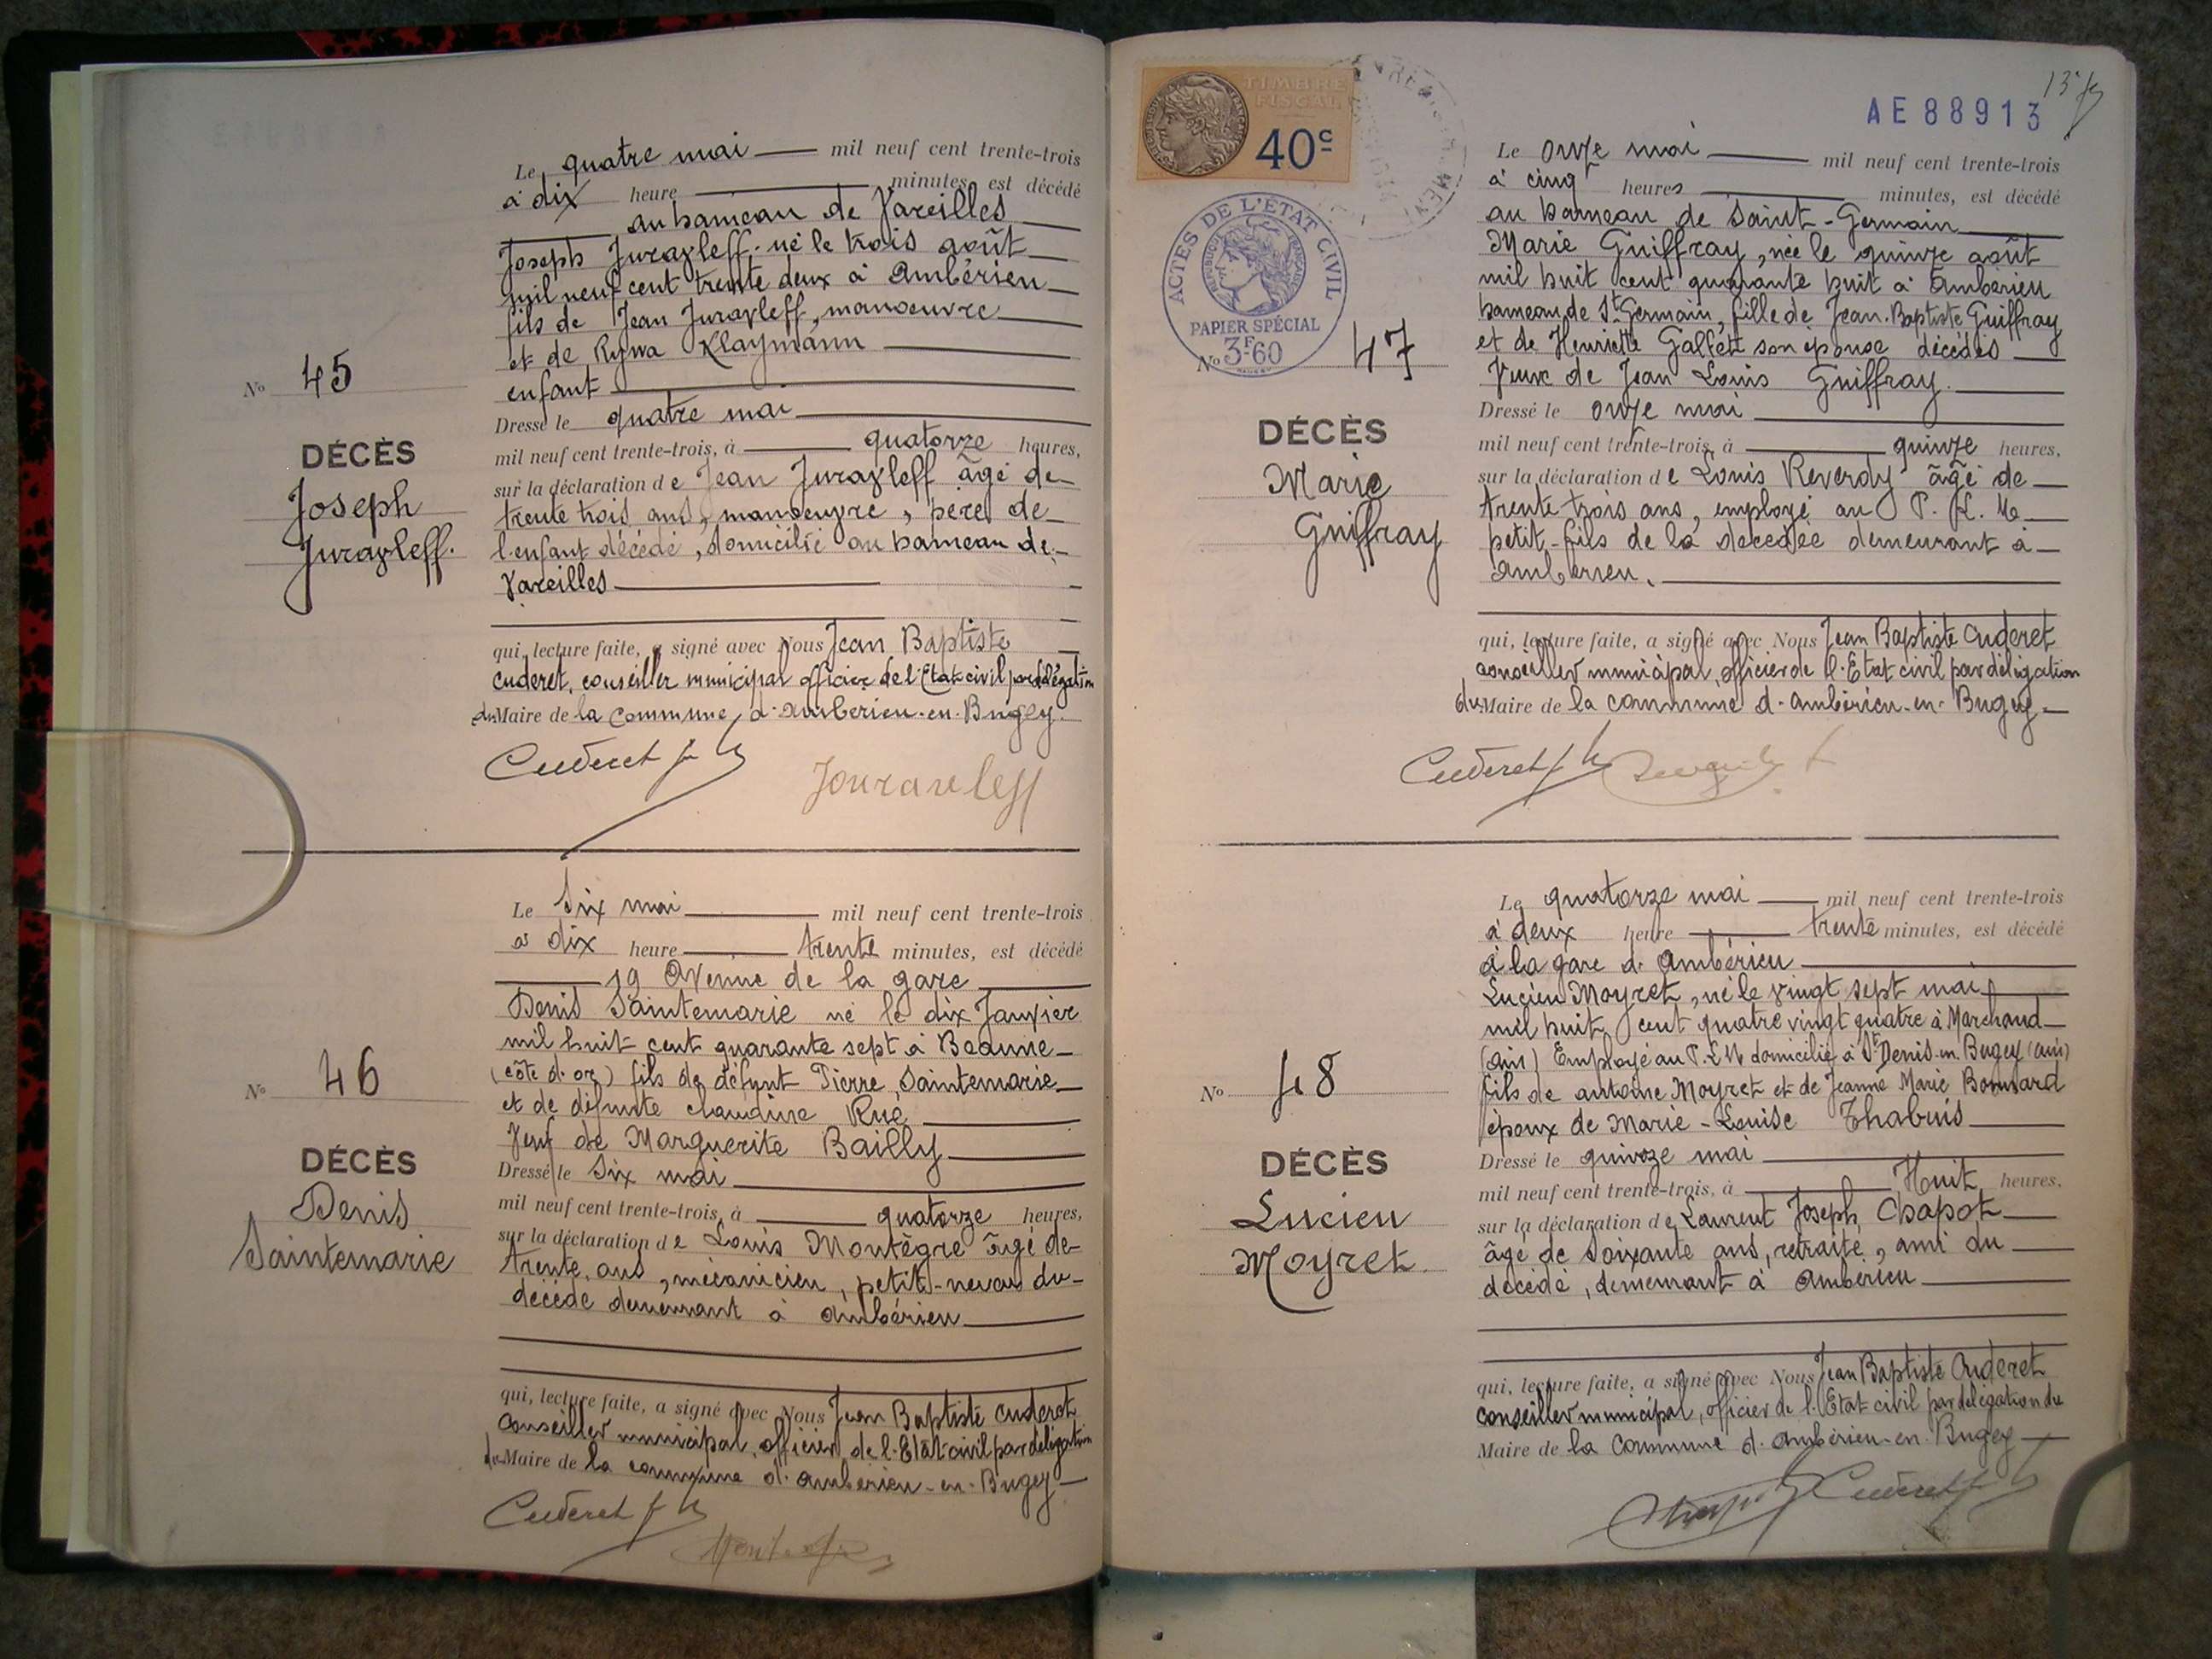 Le quatre mai mil neuf cent trente-trois
à dix heure minutes, est décédé
au hameau de Vareilles
Joseph Juravleff. né le trois août
mil neuf cent trente deux à Ambérieu
fils de Jean Juravleff, manoeuvre
et de Rywa Klaymann
enfant
Dressé le quatre mai
mil neuf cent trente-trois, à quatorze heures,
sur la déclaration de Jean Juravleff âgé de
trente trois ans, manoeuvre, père de
l'enfant décédé, domicilié au hameau de
Vareilles
qui, lecture faite, a signé avec Nous Jean Baptiste
Cuderet, conseiller municipal officier de l'Etat-civil par délégation
du Maire de la commune d'Ambérieu-en-Bugey.
Cuderet
Jouravleff
No 45
DÉCÈS
Joseph
Juravleff.
Le Six mai mil neuf cent trente-trois
à dix heure trente minutes, est décédé
19 Avenue de la gare
Denis Saintemarie né le dix Janvier
mil huit cent quarante sept à Beaune
(côte d'or) fils de défunt Pierre Saintemarie
et de défunte Claudine Rué
Veuf de Marguerite Bailly
Dressé le Six mai
mil neuf cent trente-trois, à quatorze heures,
sur la déclaration de Louis Montègre âgé de
trente ans, mécanicien, petit-neveu du
décédé demeurant à Ambérieu
qui, lecture faite, a signé avec Nous Jean Baptiste Cuderet
Conseiller municipal, officier de l'Etat-civil par délégation
du Maire de la commune d'Ambérieu-en-Bugey
Cuderet
No 46
DÉCÈS
Denis
Saintemarie
TIMBRE
FISCAL
40c
AE 88913
ACTES DE L'ÉTAT CIVIL
PAPIER SPÉCIAL
3F60
Le onze mai mil neuf cent trente-trois
à cinq heures minutes, est décédé
au hameau de Saint-Germain
Marie Guiffray, née le quinze août
mil huit cent quarante huit à Ambérieu
hameau de St Germain, fille de Jean-Baptiste Guiffray
et de Henriette Galfét son épouse décédés
Veuve de Jean Louis Guiffray.
Dressé le onze mai
mil neuf cent trente-trois, à quinze heures,
sur la déclaration de Louis Reverdy âgé de
trente trois ans, employé au P. L. M.
petit-fils de la décédée demeurant à
Ambérieu.
qui, lecture faite, a signé avec Nous Jean Baptiste Cuderet
conseiller municipal, officier de l'Etat civil par délégation
du Maire de la commune d'Ambérieu-en-Bugey
Cuderet
No 47
DÉCÈS
Marie
Guiffray
Le quatorze mai mil neuf cent trente-trois
à deux heure trente minutes, est décédé
à la gare d'Ambérieu
Lucien Moyret, né le vingt sept mai
mil huit cent quatre vingt quatre à Marchand
(ain) Employé au P.L.M domicilié à St Denis-en-Bugey (ain)
fils de Antoine Moyret et de Jeanne Marie Bonnard
époux de Marie-Louise Thabuis
Dressé le quinze mai
mil neuf cent trente-trois, à Huit heures,
sur la déclaration de Laurent Joseph Chapot
âgé de soixante ans, retraité, ami du
décédé, demeurant à Ambérieu
qui, lecture faite, a signé avec Nous Jean Baptiste Cuderet
conseiller municipal, officier de l'Etat civil par délégation du
Maire de la commune d'Ambérieu-en-Bugey
Cuderet
No 48
DÉCÈS
Lucien
Moyret